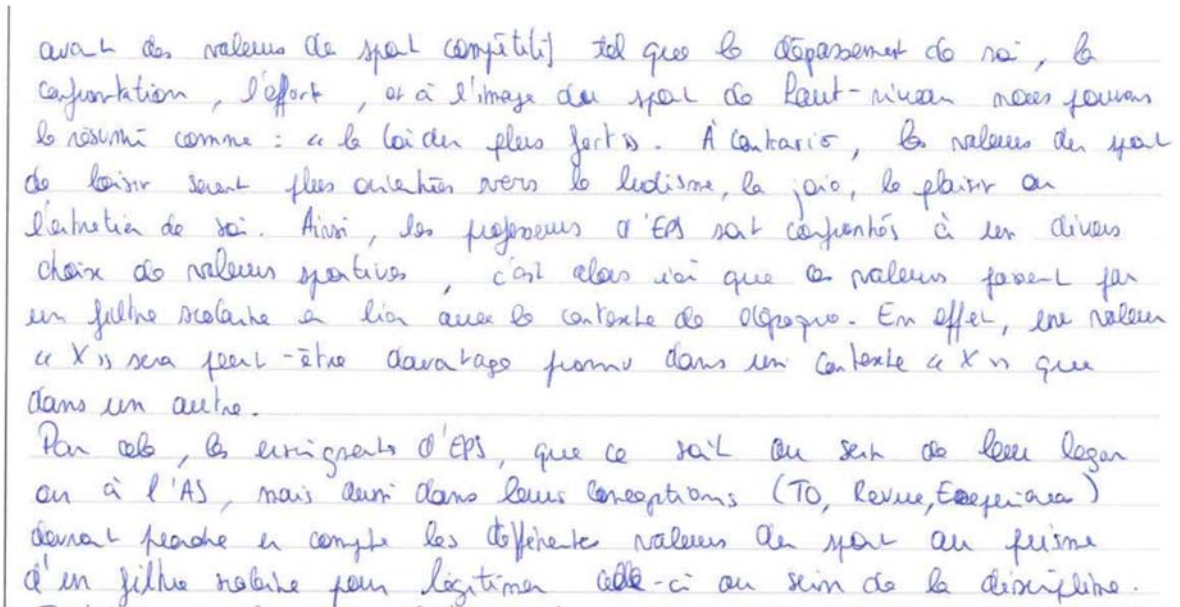 avant des valeurs de sport compétitif tel que le dépassement de soi, la
confrontation, l'effort, et à l'image du sport de haut-niveau nous pouvons
le résumé comme : « la loi du plus fort ». À contrario, les valeurs du sport
de loisir seront plus orientées vers le ludisme, la joie, le plaisir ou
l'entretien de soi. Ainsi, les professeurs d'EPS sont confrontés à un divers
choix de valeurs sportives, c'est alors ici que ces valeurs passent par
un filtre scolaire en lien avec le contexte de l'époque. En effet, une valeur
« X » sera peut-être davantage promu dans un contexte « X » que
dans un autre.
Par cela, les enseignants d'EPS, que ce soit au sein de leur leçon
ou à l'AS, mais aussi dans leurs conceptions (TO, Revue, Expériences)
devront prendre en compte les différentes valeurs du sport au prisme
d'un filtre scolaire pour légitimer celle-ci au sein de la discipline.